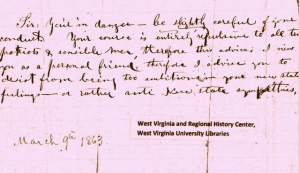 Sir, You'r in danger — be slightly careful of your
conduct. Your course is entirely repulsive to all true
patriots & sensible men, therefore this advice. I view
you as a personal friend therefore I advise you to
desist from being too ambitious in your new state
feelings — or rather anti New state sympathies,
March 9th 1863
West Virginia and Regional History Center,
West Virginia University Libraries